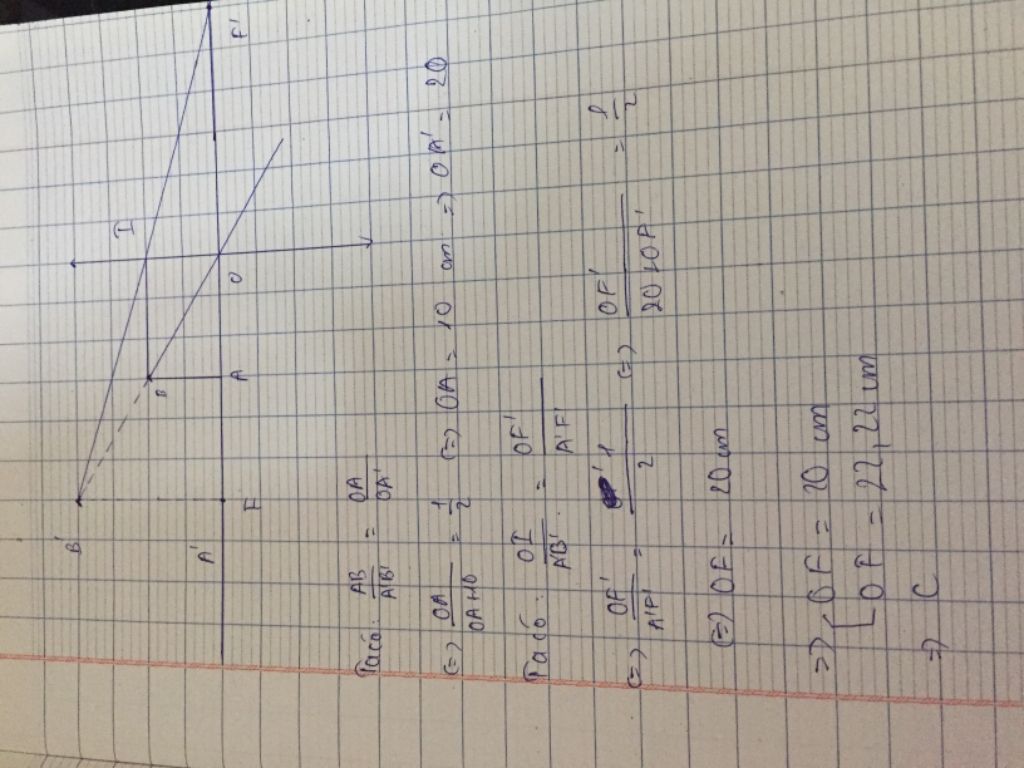 B'
I
B
A'
F
A
O
F'
Ta có: AB/A'B' = OA/OA'
(=) OA/OA+10 = 1/2 (=) OA = 10 cm =) OA' = 20
Ta có: OI/A'B' = OF'/A'F'
(=) OF'/A'F' = 1/2 (=) OF'/20+OF' = 1/2
(=) OF = 20 cm
=) [ OF = 20 cm
OF = 22,22 cm
=) C